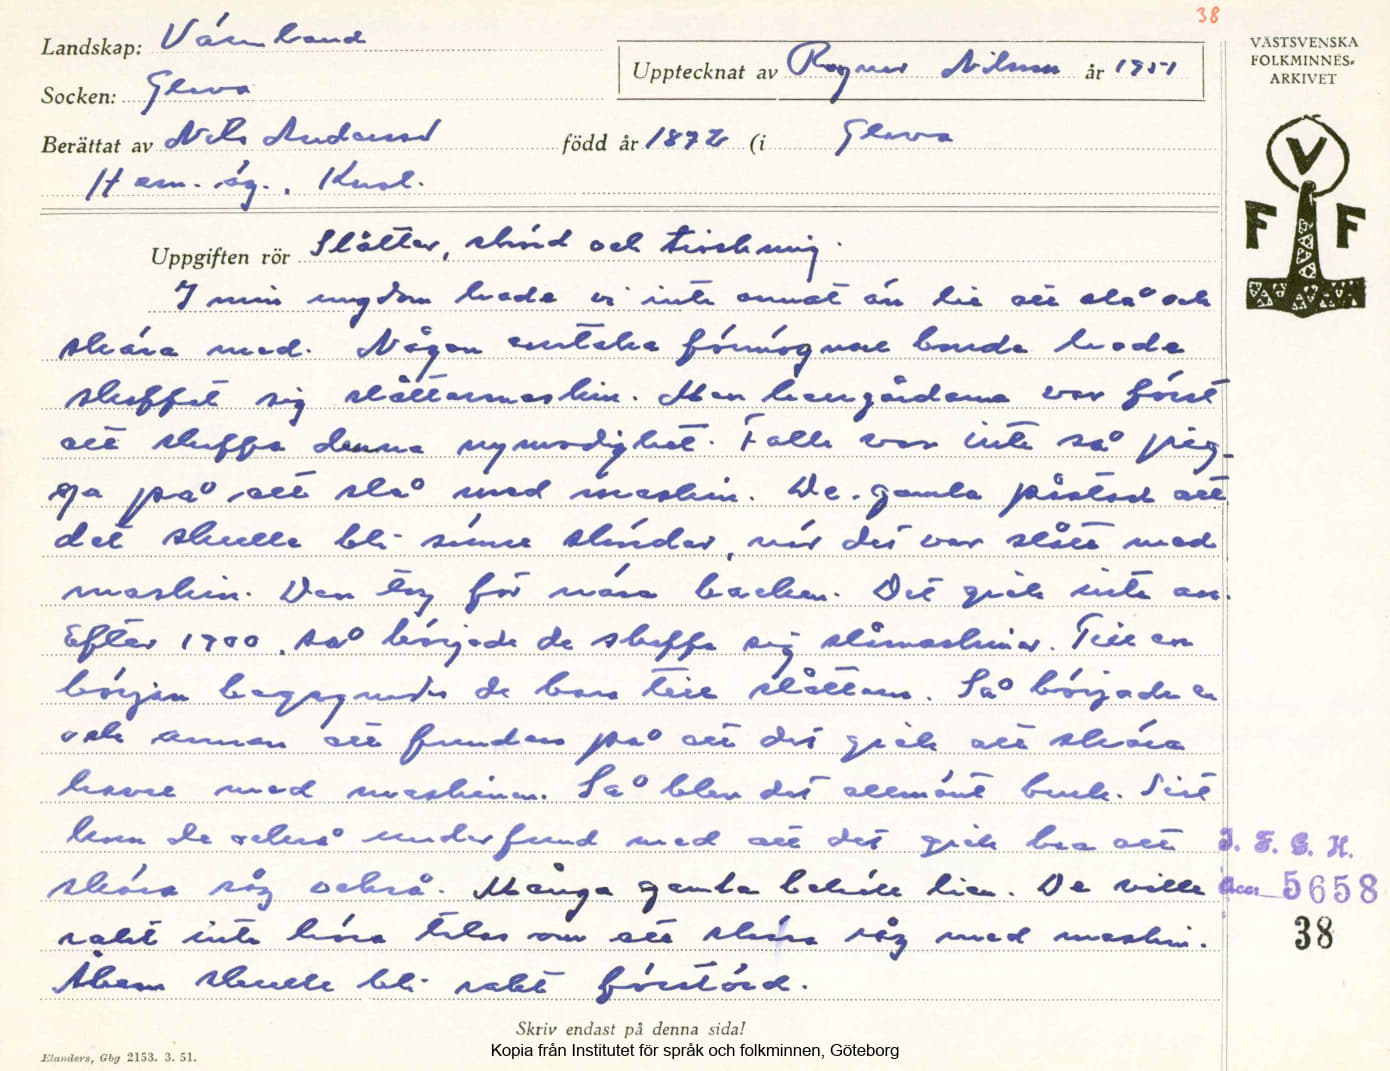 38
Landskap: Värmland
VÄSTSVENSKA
FOLKMINNES-
ARKIVET
Upptecknat av Ragnar Nilsson år 1951
Socken: Glava
Berättat av Nils Andersson född år 1872 (i Glava
Hem. äg., Kust.
V
F F
Uppgiften rör Slåtter, skörd och tröskning.
I min ungdom hade vi inte annat än lie att slå och
skära med. Någon enstaka förmögnare bonde hade
skaffat sig slåttermaskin. Men herrgårdarna var först
att skaffa denna nymodighet. Folk var inte så pig-
ga på att slå med maskin. De gamla påstod att
det skulle bli sämre skördar, när det var slått med
maskin. Den tog för nära backen. Det gick inte an.
Efter 1900, så började de skaffa sig slåmaskiner. Till en
början begagnades de bara till slåttern. Så började en
och annan att fundera på att det gick att skära
havre med maskinen. Så blev det allmänt bruk. Sist
kom de också underfund med att det gick bra att
skära råg också. Många gamla behöll lien. De ville
rakt inte höra talas om att skära råg med maskin.
Åkern skulle bli rakt förstörd.
I. F. G. H.
Acc. 5658
38
Skriv endast på denna sida!
Elanders, Gbg 2153. 3. 51.
Kopia från Institutet för språk och folkminnen, Göteborg